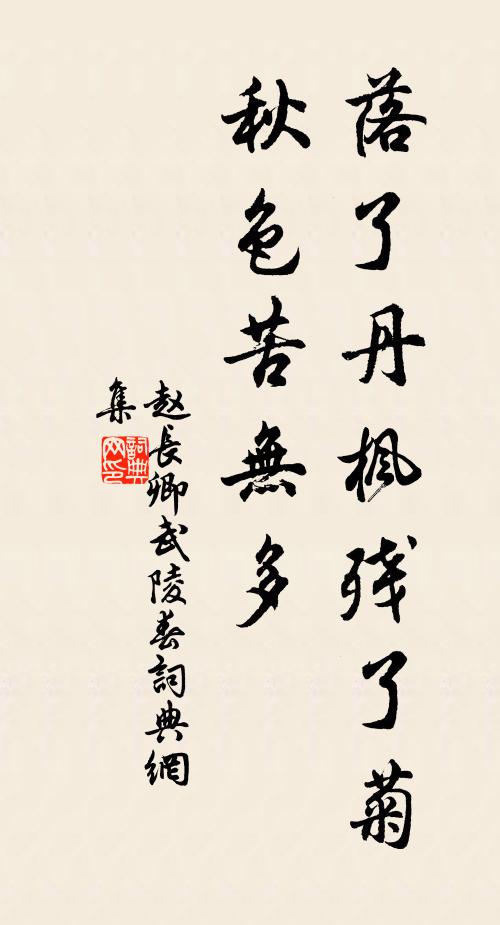 落了丹楓残了菊
秋色苦無多
赵長卿武陵春詞典網
集
詞典网印